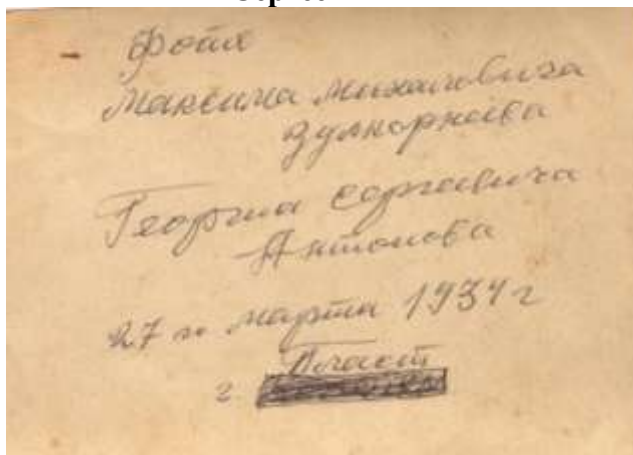 фото
Максима Михайловича
Зулкорнаева
Георгия Сергеевича
Антонова
27 го марта 1934 г
г